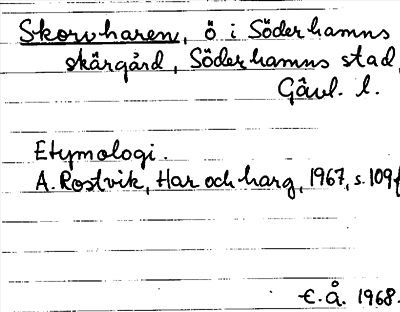 Skorvharen, ö i Söderhamns
skärgård, Söderhamns stad,
Gävl. l.
Etymologi.
A. Rostvik, Har och harg, 1967, s. 109f
E.Å. 1968.